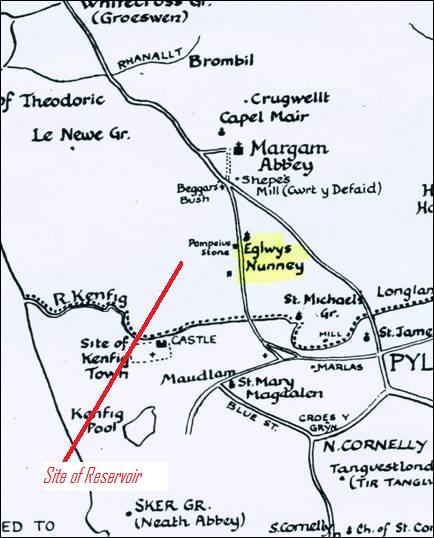 Whitecross Gr.
(Groeswen)
RHANALLT
Brombil
of Theodoric
Crugwellt
Capel Mair
Le Newe Gr.
Margam
Abbey
Shepe's
Mill (Cwrt y Defaid)
Beggars
Bush
Pompeius
Stone
Eglwys
Nunney
R. Kenfig
St. Michaels
Gr.
Longlan
MILL
St. Jame
Site of
Kenfig
Town
CASTLE
PYL
Maudlam
MARLAS
St. Mary
Magdalen
Kenfig
Pool
BLUE ST.
CROES Y
GRYN
N. CORNELLY
Site of Reservoir
Tanguestlond
(TIR TANGL
SKER GR.
(Neath Abbey)
ED TO
S. Cornelly
Ch. of St. Com